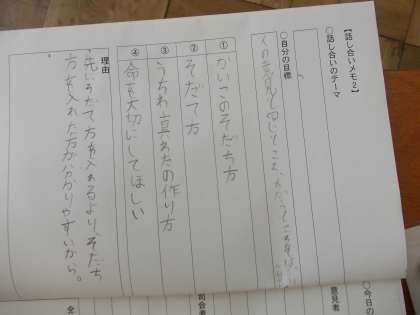 【話し合いメモ２】
○話し合いのテーマ
○自分の目標
人の意見と同じところ
① かいこのそだち方
② そだて方
③ うちわ、真わたの作り方
④ 命を大切にしてほしい
理由
「先にそだて方を入れるより、そだち
方を入れた方が分かりやすいから。
○今日の
意見者
司会者